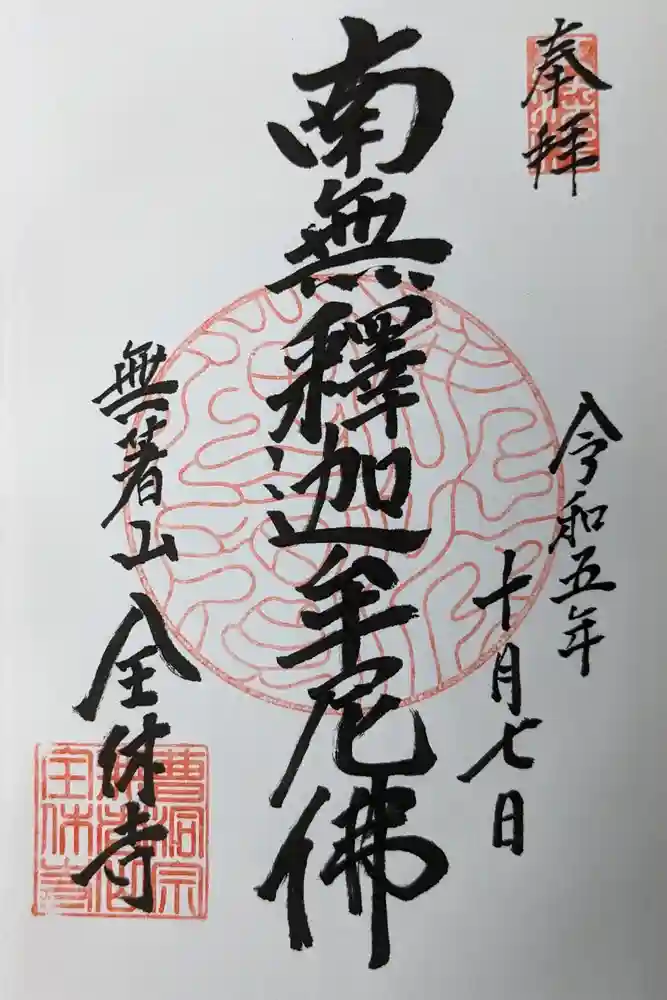 奉拝
令和五年
十月七日
南無釋迦牟尼佛
無著山
全休寺
曹洞宗
全休寺